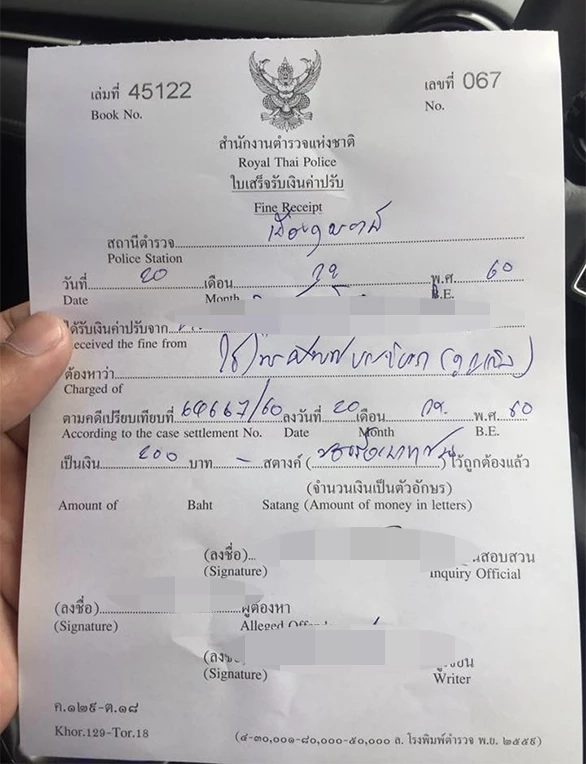 เล่มที่ 45122 เลขที่ 067
Book No. No.
สำนักงานตำรวจแห่งชาติ
Royal Thai Police
ใบเสร็จรับเงินค่าปรับ
Fine Receipt
สถานีตำรวจ
Police Station
วันที่ 20 เดือน กย พ.ศ. 60
Date Month B.E.
ได้รับเงินค่าปรับจาก
Received the fine from
ต้องหาว่า
Charged of
ตามคดีเปรียบเทียบที่ /60 ลงวันที่ 20 เดือน กย. พ.ศ. 60
According to the case settlement No. Date Month B.E.
เป็นเงิน 200 บาท - สตางค์ (สองร้อยบาทถ้วน) ไว้ถูกต้องแล้ว
(จำนวนเงินเป็นตัวอักษร)
Amount of Baht Satang (Amount of money in letters)
(ลงชื่อ) สอบสวน
(Signature) Inquiry Official
(ลงชื่อ) ผู้ต้องหา
(Signature) Alleged
(ลงชื่อ) ผู้เขียน
(Signature) Writer
ค.๑๒๙-ต.๑๘
Khor.129-Tor.18
(๔-๓๐,๐๐๑-๘๐,๐๐๐-๕๐,๐๐๐ ล. โรงพิมพ์ตำรวจ พ.ย. ๒๕๕๙)